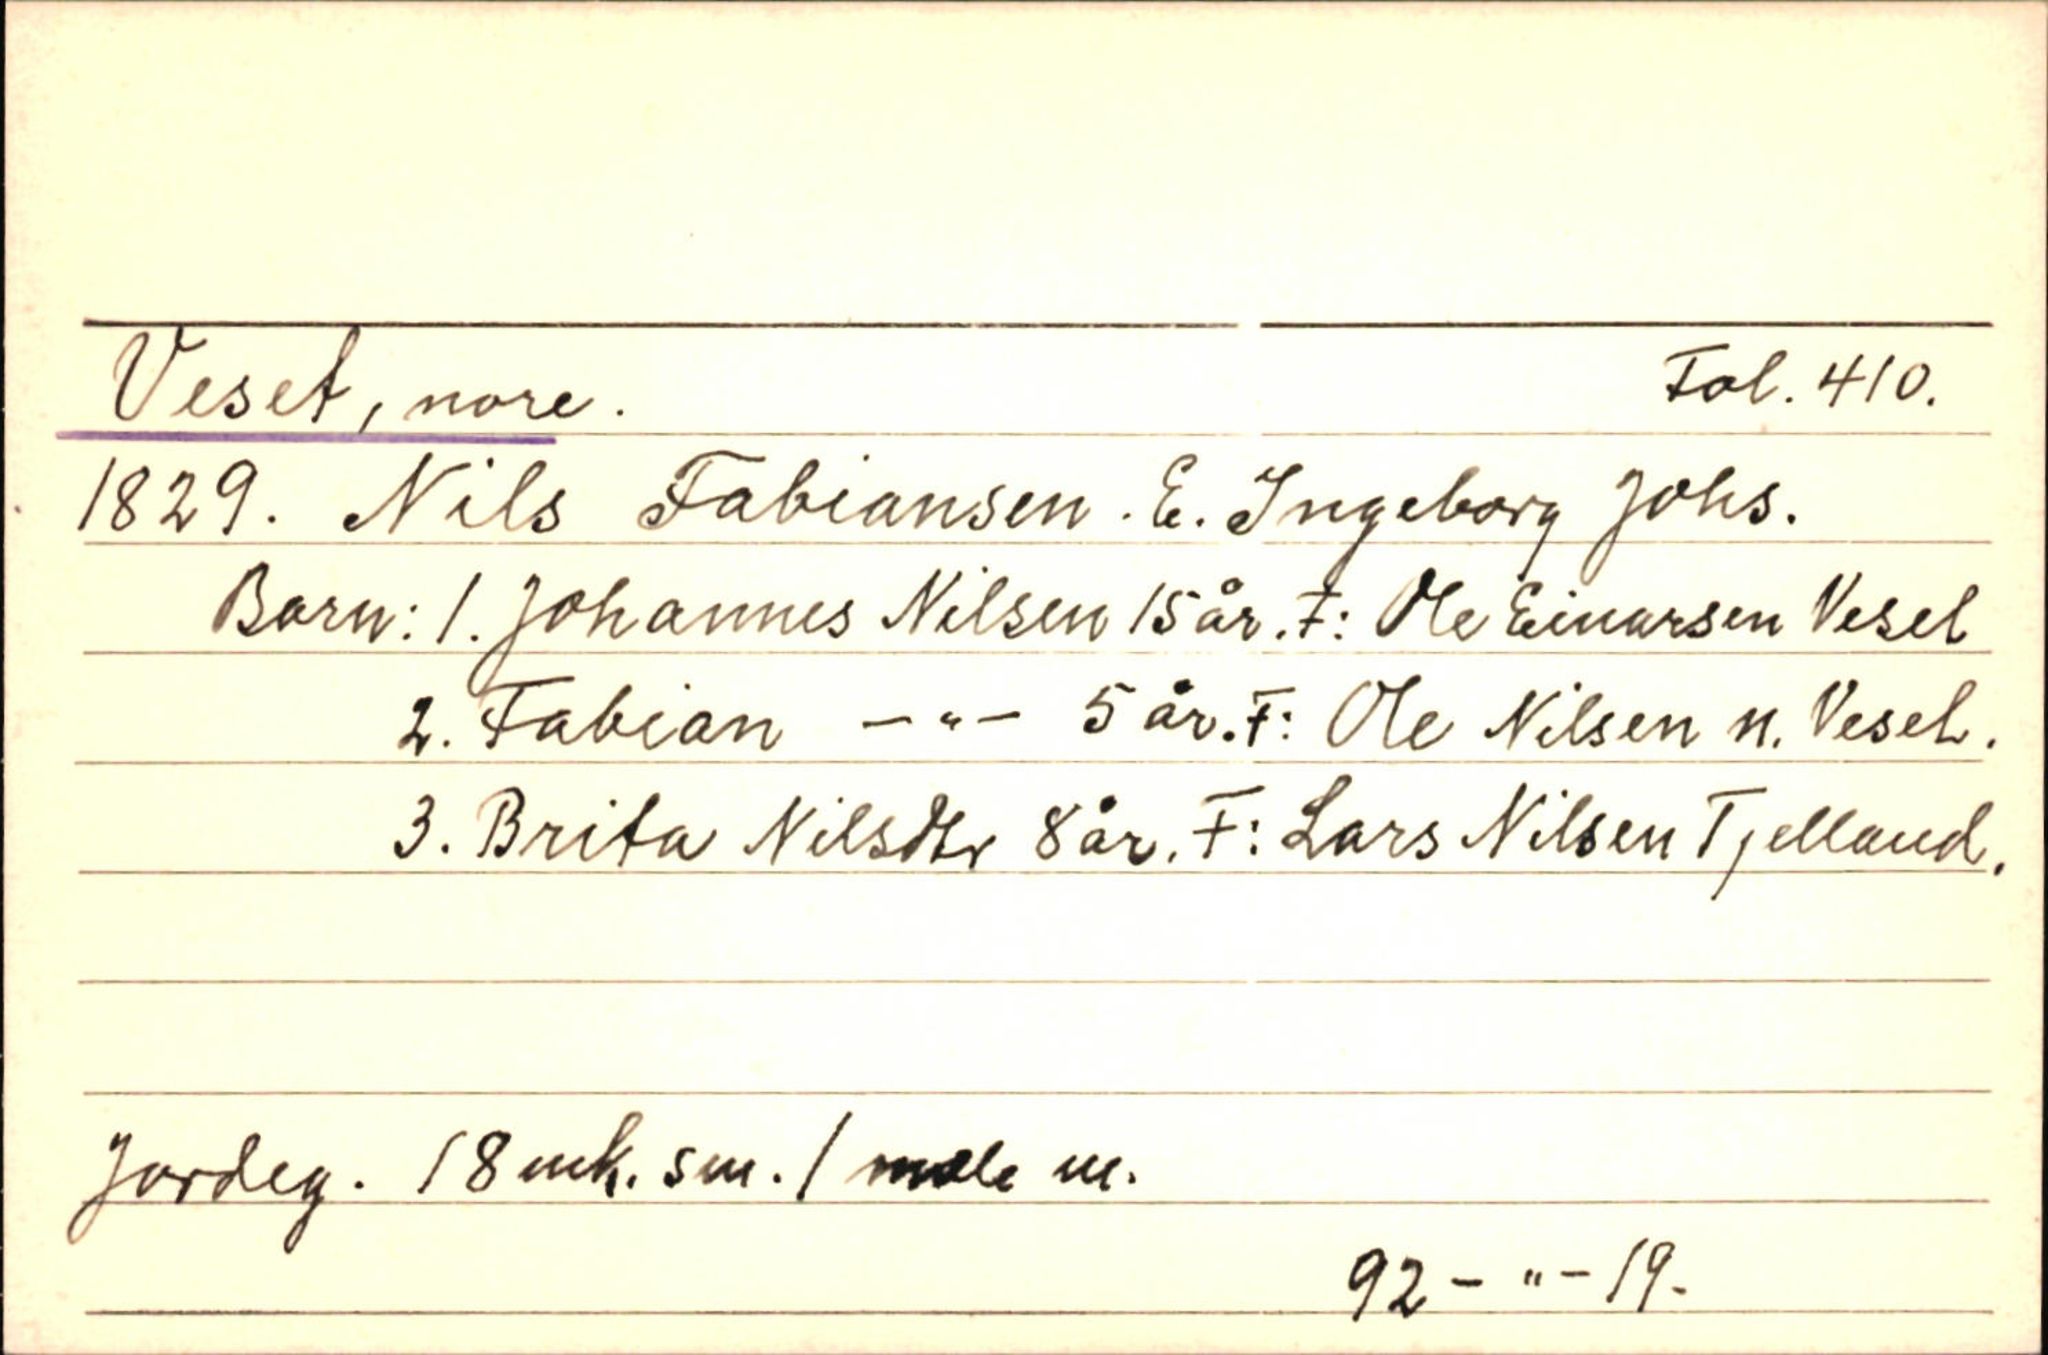 Veset, nore. Fol. 410.
1829. Nils Fabiansen. E. Ingeborg Johs.
Born: 1. Johannes Nilsen 15 år. F: Ole Einarsen Veset
2. Fabian —"— 5 år. F: Ole Nilsen n. Veset.
3. Brita Nilsdtr 8 år. F: Lars Nilsen Tjelland.
Jordeg. 18 mk. sm. 1 mele m.
92 – " – 19.